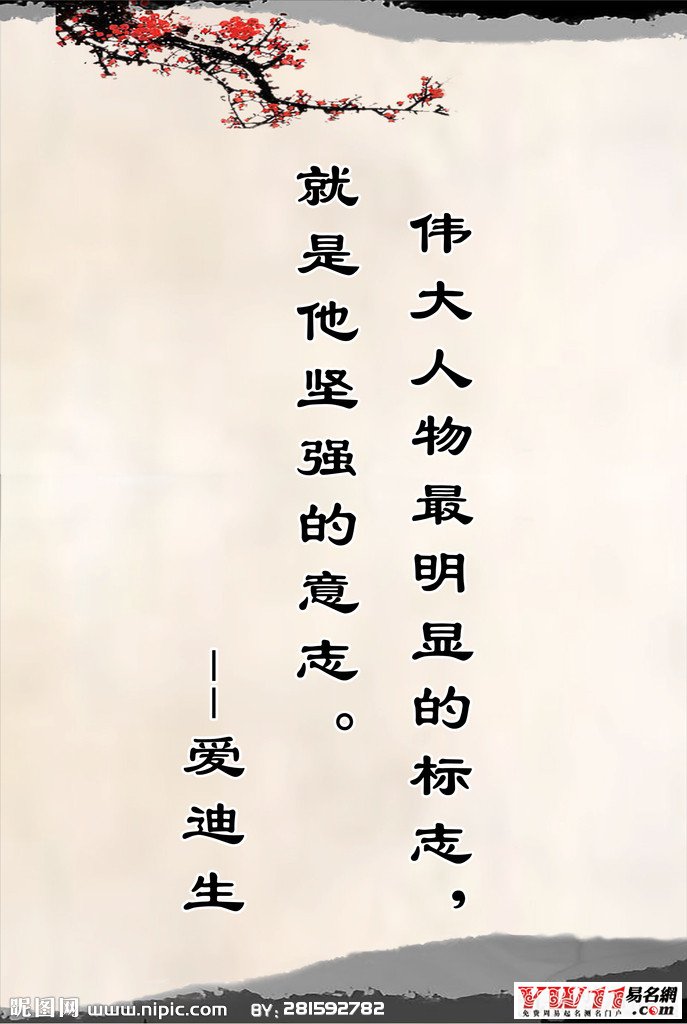 伟大人物最明显的标志，
就是他坚强的意志。
——爱迪生
昵图网 www.nipic.com BY: 281592782
YW11易名網
免费周易起名测名门户
.com